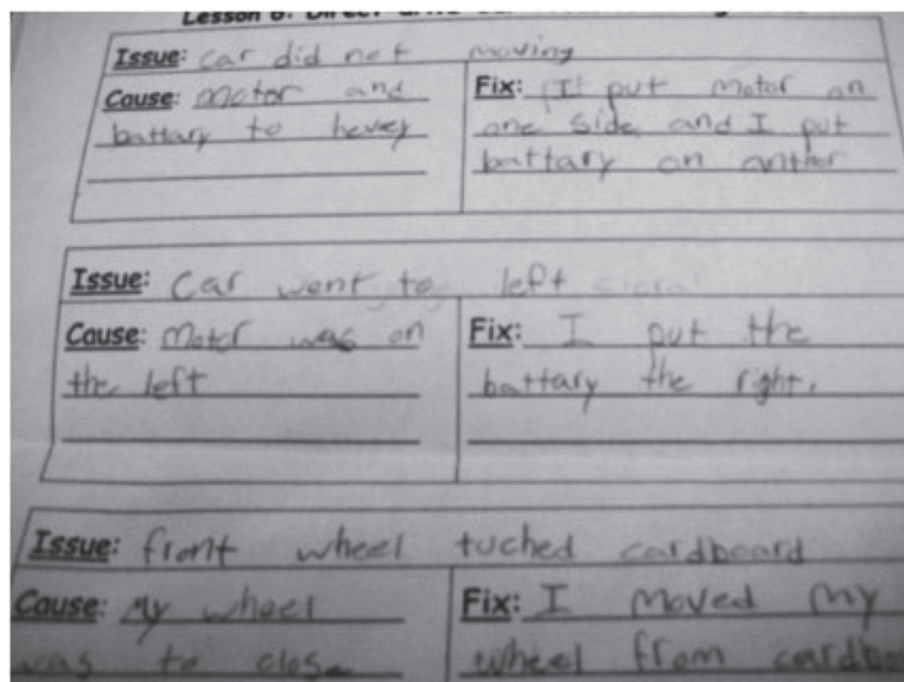 Lesson 6: Direct
Issue: car did not moving
Cause: motor and
battary to hevey
Fix: I put motor on
one side and I put
battary on anther
Issue: Car went to left
Cause: Moter was on
the left
Fix: I put the
battary the right.
Issue: front wheel tuched cardboard
Cause: My wheel
was to close
Fix: I moved my
wheel from